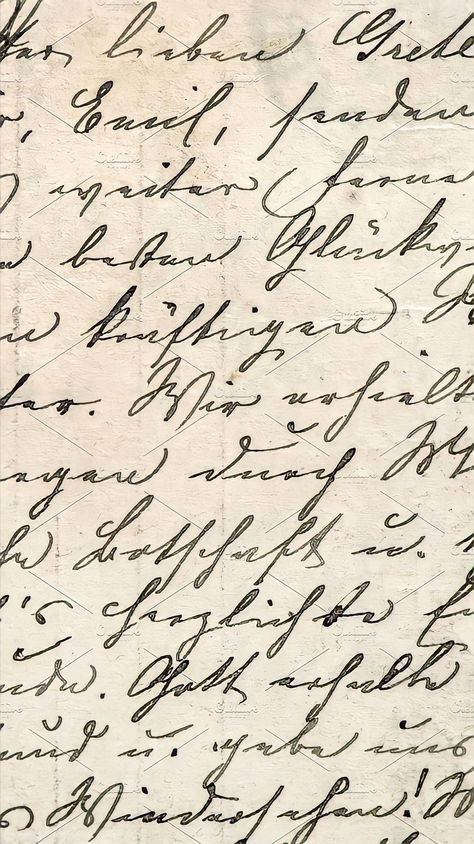 lieben Grete
Emil, senden
weiter ferne
besten Glückw
kräftigen
ter. Wir erhielt
egen durch
Botschaft u.
's herzlichste
ude. Gott erhalte
und u. gebe uns
Wiedersehen! W